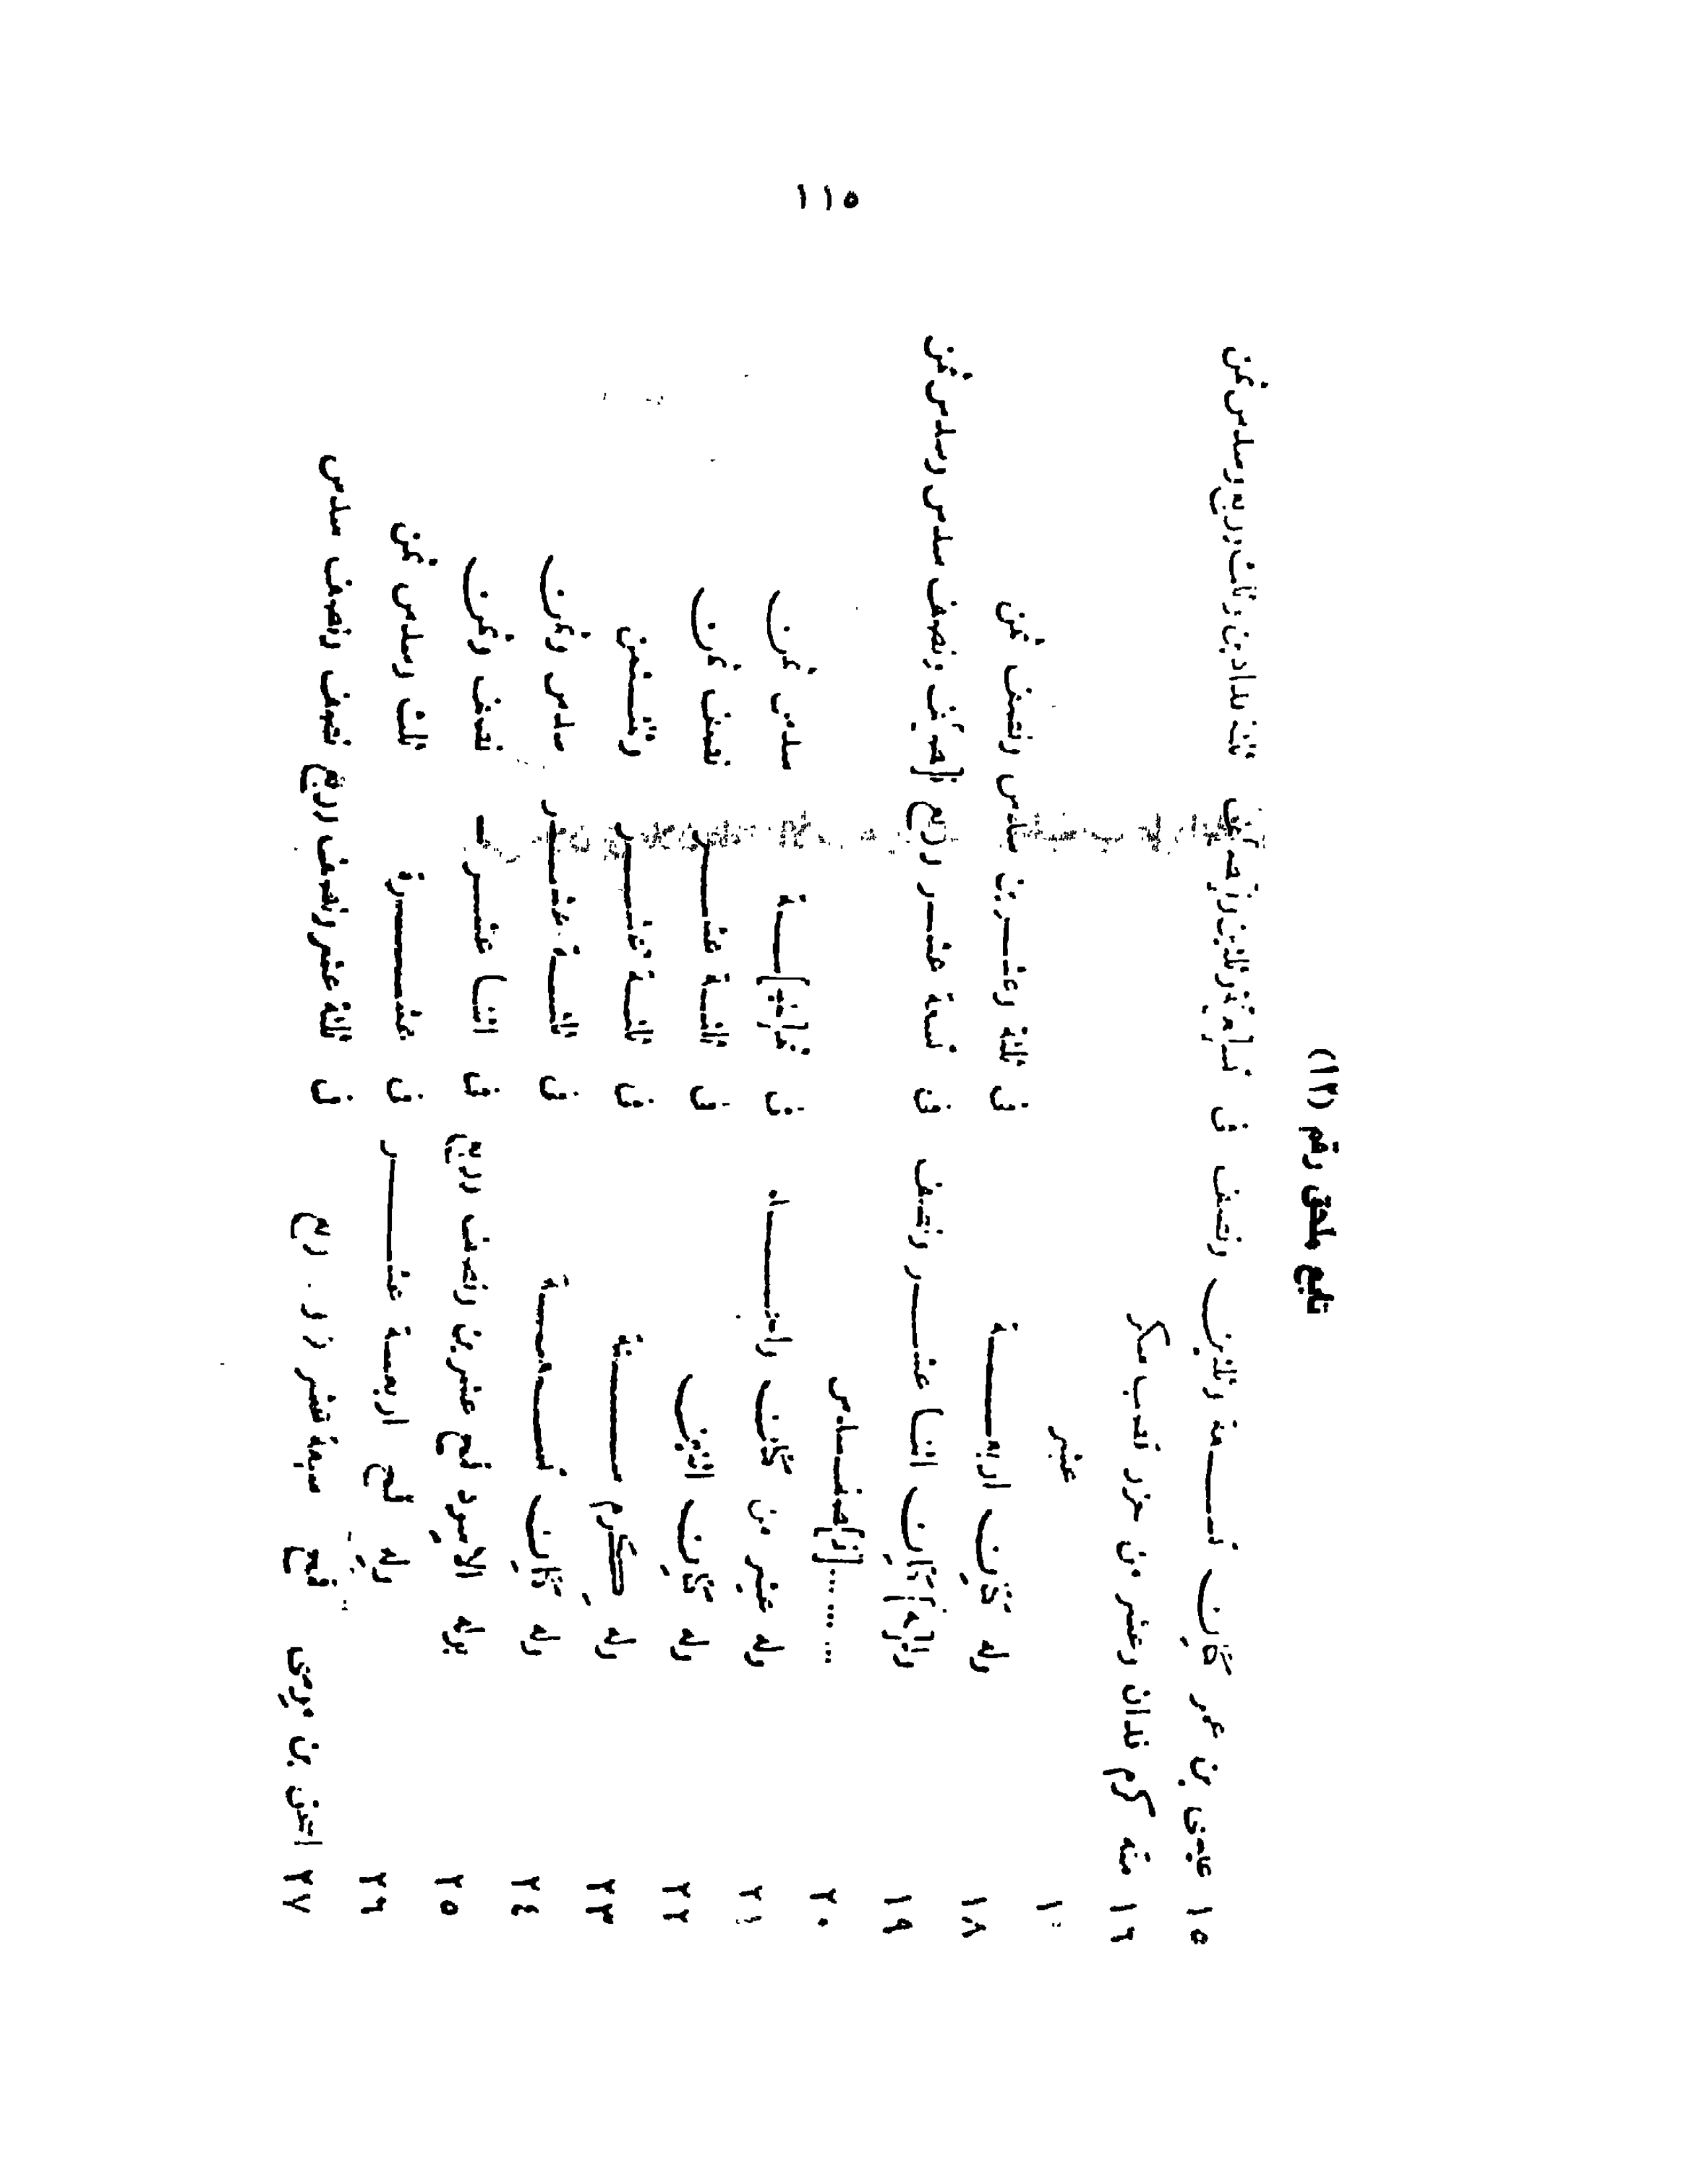 ١١٥
تابع ملحق رقم (١٢)
١٥ عيسى بن عمر كتان تسعة وثلاثين ونصف فى ثلثه فدادين وثلث وربع وسدس ثمن
١٦ منه كرم فدان وعشر من جزر قصب سكر
عشر
١٨ وله كتان اربعة فى ثلثة وعشرين سدس ونصف ثمن
١٩ و[له] كتان اثنا عشر ونصف فى تسعة عشر وربع ونصف سدس وسدس ثمن
٢٠ ...... [نـ]صف سدس
٢١ وله عشر من كتان واحد فى سدس ثمن
٢٢ وله كتان اثنين فى ثلثة عشر نصف ثمن
٢٣ وله كرم ستة فى ثلثة عشر وثمن
٢٤ وله كتان تسعة فى ثلثة عشر سدس وثمن
٢٥ وله الاسود قمح عشرين ونصف وربع فى اثنا عشر نصف وثمن
٢٦ وله قمح اربعة عشر فى عشرة ثلث وسدس ثمن
٢٧ قمح سبعة عشر وربع فى ثلثة عشر ونصف وربع نصف ونصف سدس